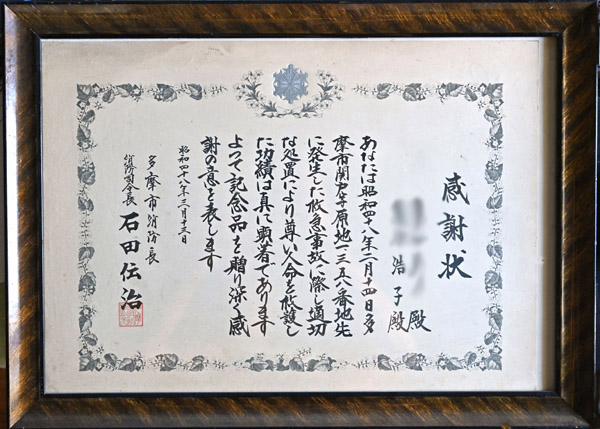 感謝状
殿
浩子殿
あなたは昭和四十八年二月十四日多
摩市関戸字原地一三五八番地先
に発生した救急事故に際し適切
な処置により尊い人命を救護し
た功績は真に顕著であります
よって記念品を贈り深く感
謝の意を表します
昭和四十八年三月十三日
多摩市消防長
消防司令長 石田伝治